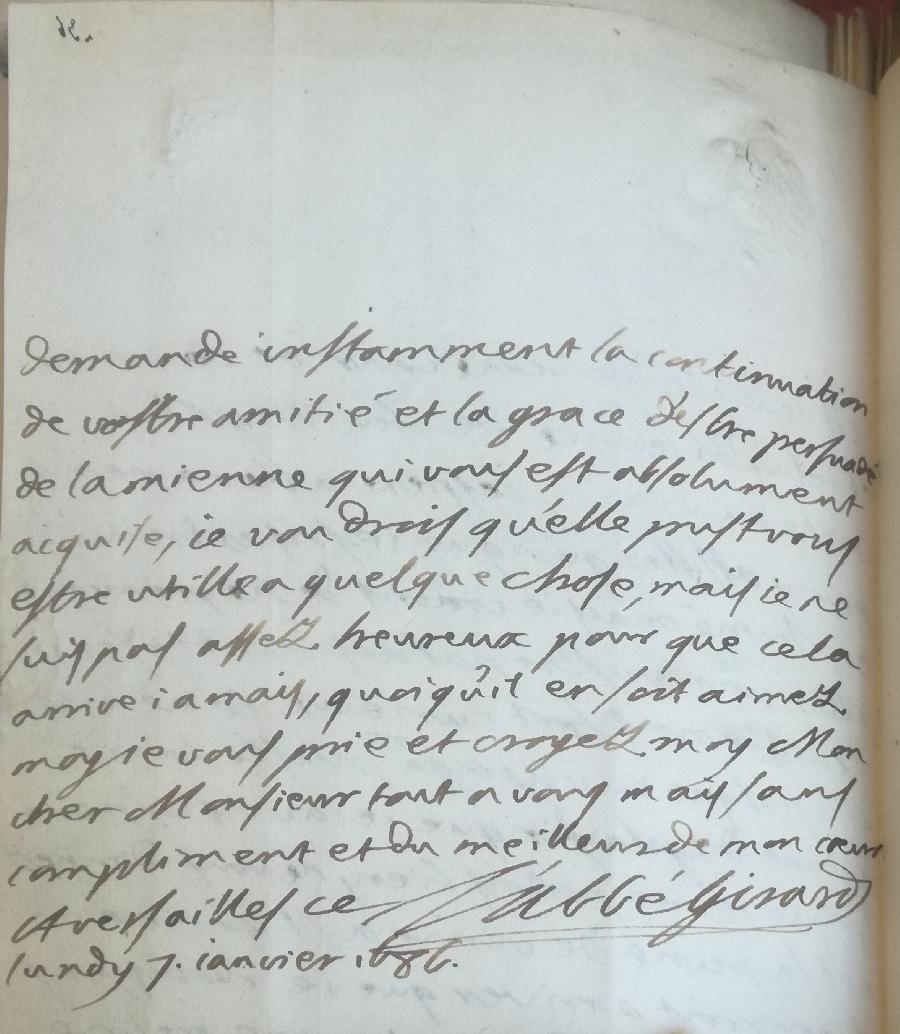 demande instamment la continuation
de vostre amitié et la grace d'estre persuadé
de la mienne qui vous est absolument
acquise, ie voudrois qu'elle pust vous
estre utille a quelque chose, mais ie ne
suis pas assez heureux pour que cela
arrive iamais, quoiqu'il en soit aimez
moy ie vous prie et croyez moy Mon
cher Monsieur tout a vous mais sans
compliment et du meilleur de mon cœur
A versailles ce L'abbé Girard
lundy 7. ianvier 1686.